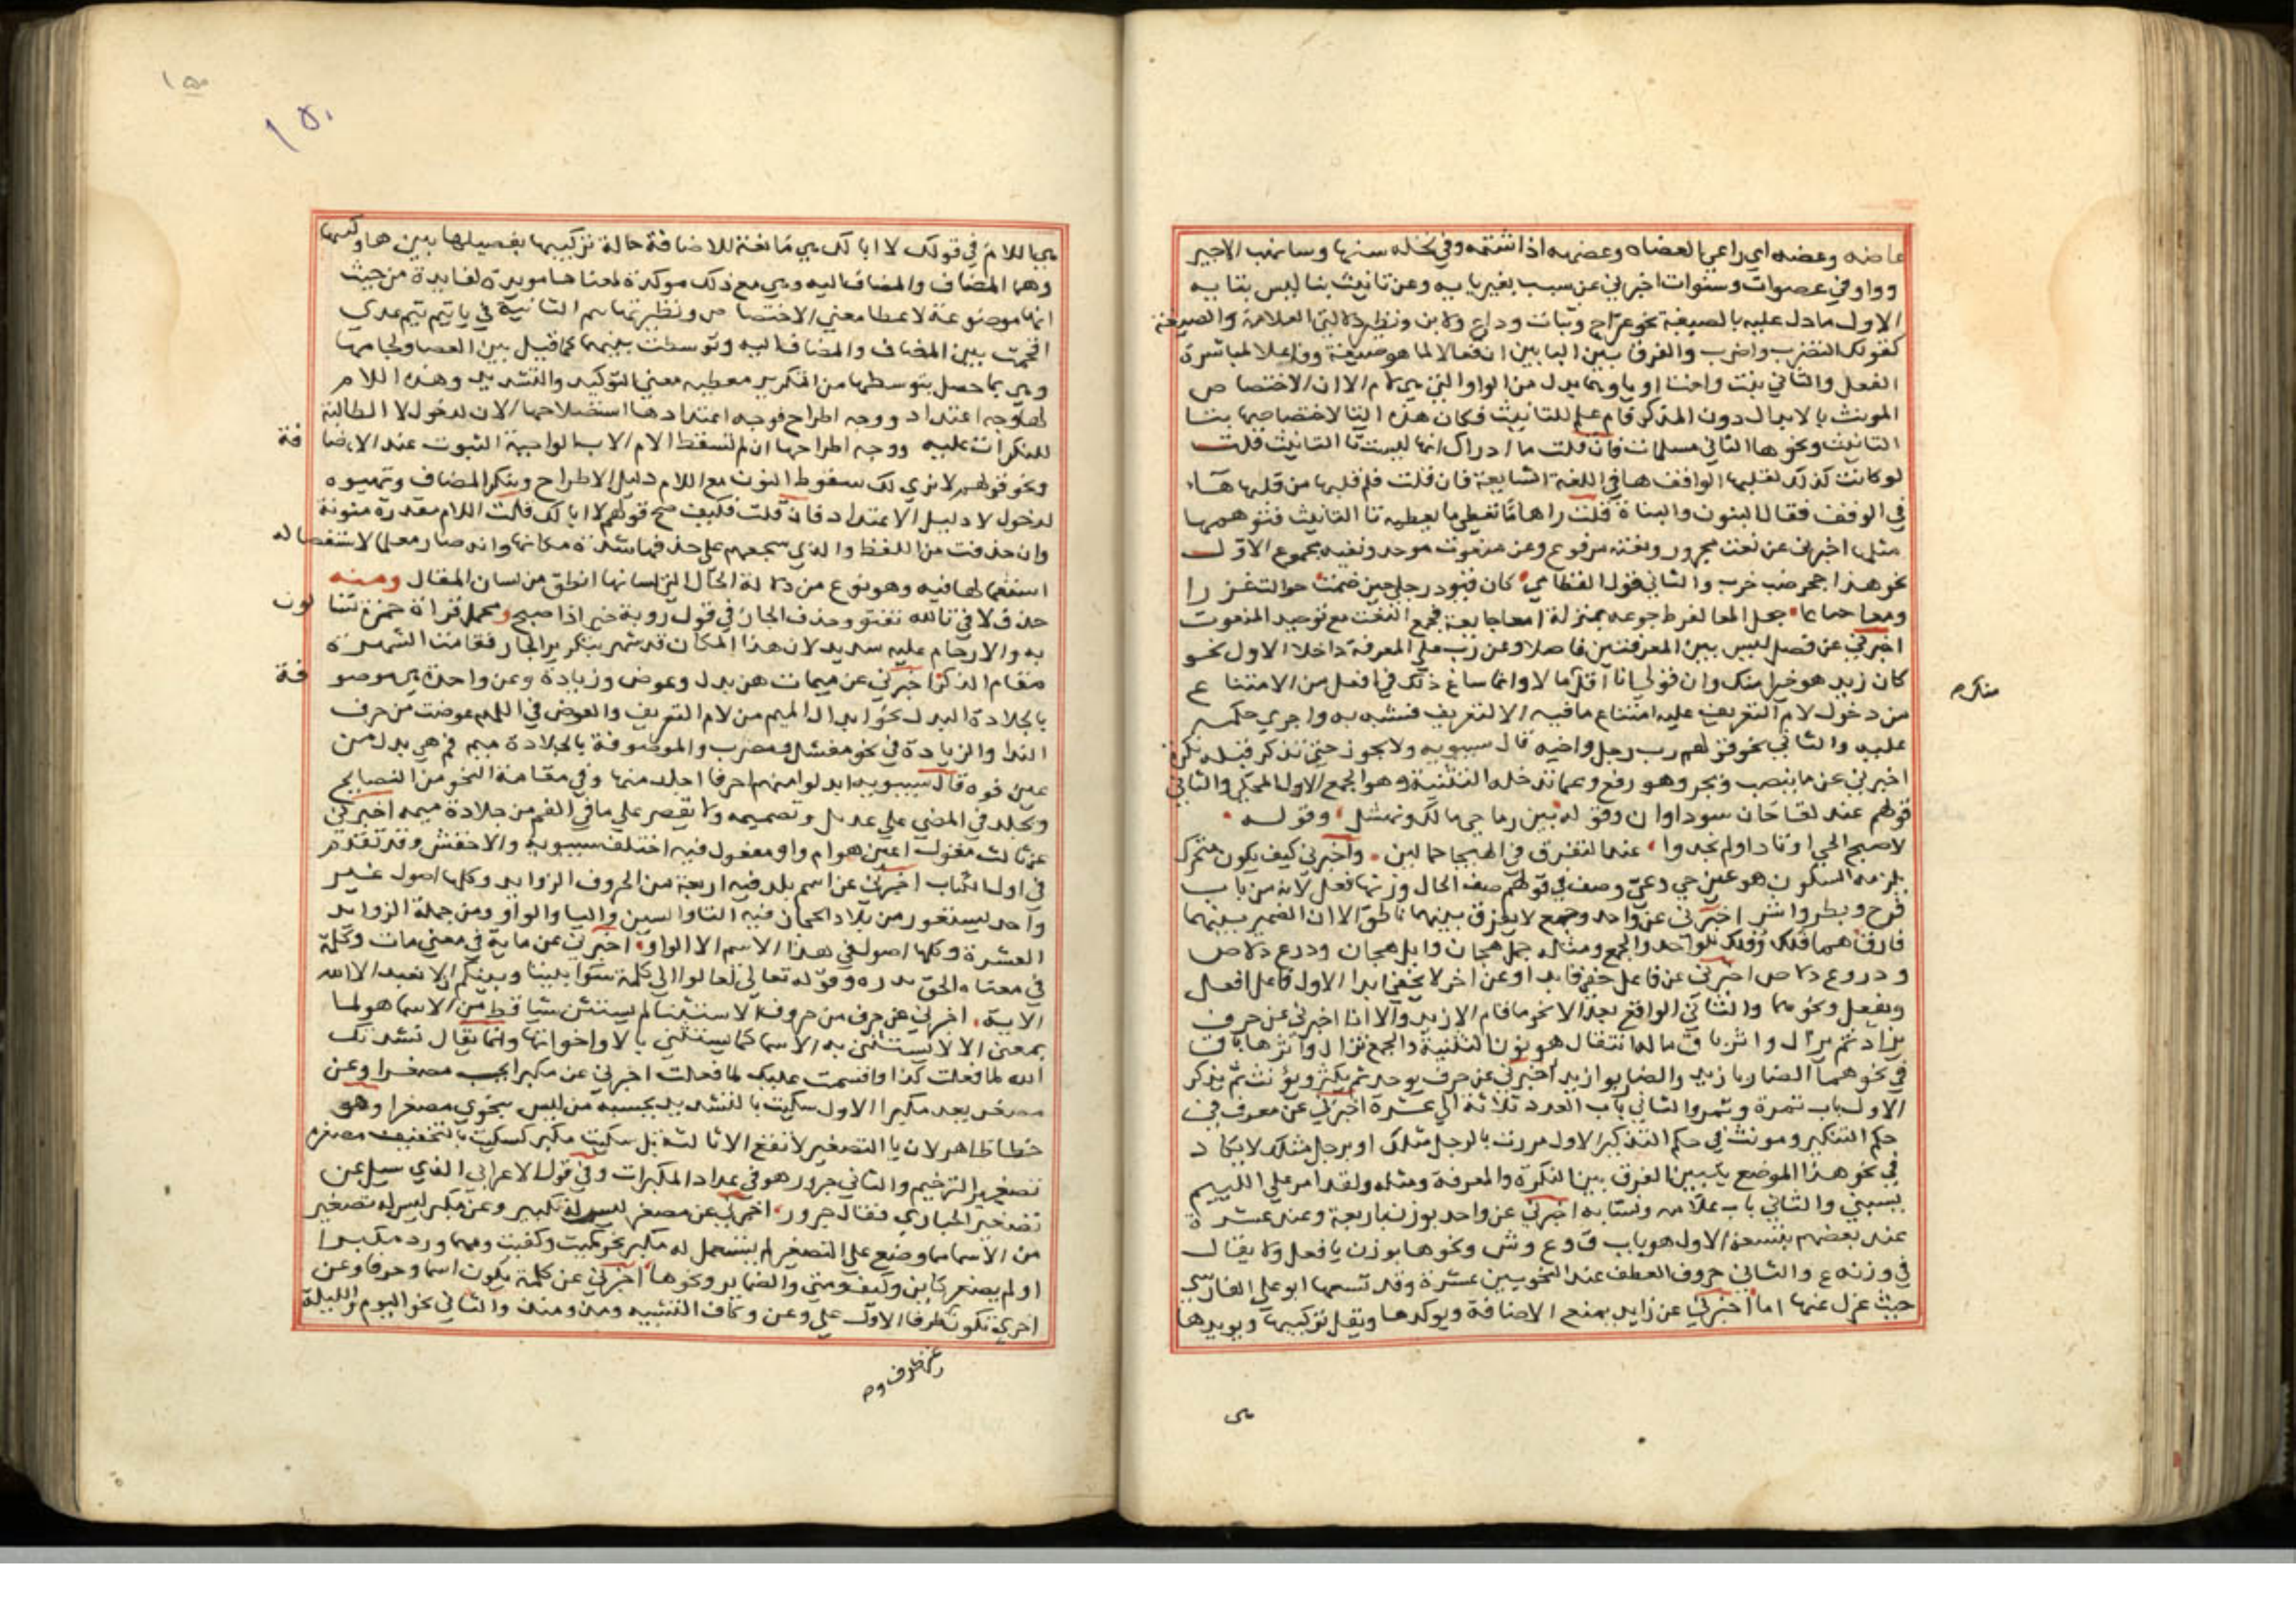 عاضه وعضه اي راعي العضاه وعضهه اذا شتمه وفي نخله سنها وسانهت الاجير
وواو في عضوات وسنوات اخبرني عن سبب بغير يا به وعن تانيث بتا ليس بتا به
الاول ما دل عليه بالصيغة نحو عراج وبتات ودارع ولابن ونظير دلالتي العلامة والصيغة
كقولك لتضرب واضرب والفرق بين البابين ان فعالا لما هو صنعة وفاعلا لمباشرة
الفعل والثاني بنت واخت او يا ويما بدل من الواو التي هي لام الا ان الاختصاص
المونث بالابدال دون المذكر قام علم للتانيث فكان هذه التا لاختصاصها بتا
التانيث ونحوها التا في مسلمات فان قلت ما ادراك انها ليست تا التانيث قلت
لو كانت كذلك لقلبها الواقف ها في اللغة الشايعة فان قلت فلم قلبها من قلبها هاء
في الوقف فقال البنون والبناه قلت راها تعطي ما يعطيه تا التانيث فتوهمها
مثلها اخبرني عن نعت مجرور ومنعوته مرفوع وعن منعوت موحد ونعته مجموع الاول
نحو هذا جحر ضب خرب والثاني قول القطامي كان قتود رحلي حين ضمت حوالب غزرا
ومعا جياعا جعل المعا لفرط جوعه بمنزلة امعا جايعة فجمع النعت مع توحيد المنعوت
اخبرني عن فصل ليس بين المعرفتين فاصلا وعن رب علي المعرفة داخلا الاول نحو
كان زيد هو خيرا منك وان قولي انا اقل مالا وانما ساغ ذلك في افعل من الامتناع
من دخول لام التعريف عليه امتناع ما فيه الالتعريف فشبه به واجري حكمه
عليه والثاني نحو قولهم رب رجل واخيه قال سيبويه ولا يجوز حتي تذكر قبله نكرة
اخبرني عما ينصب ويجر وهو رفع وعما تدخله التثنية وهو الجمع الاول المحكي والثاني
قولهم عند لقاحان سوداوان وقوله بين رماحي مالك ونهشل وقوله
لاصبح الحي اوتادا ولم يجدوا عند التفرق في الهيجا حمالين واخبرني كيف يكون متحرك
يلزمه السكون هو عين حي وعي وصف في قولهم صف الحال وزنها فعل لانه من باب
فرح وبطر واشر اخبرني عن واحد وجمع لا يفرق بينهما ناطق الا ان الضمير بينهما
فارق هما فلك وفلك للواحد والجمع ومثله جمل هجان وابل هجان ودرع دلاص
ودروع دلاص اخبرني عن فاعل خفي فما بدا وعن اخر لا يخفي ابدا الاول فاعل افعل
وتفعل ونحوهما والثاني الواقع بعد الا نحو ما قام الا زيد والا انا اخبرني عن حرف
يزاد ثم يزال واثره باق ما له انتقال هو نون التثنية والجمع تزال واثرها باق
في نحو هما الضاربا زيد والضاربوا زيد اخبرني عن حرف يوحد ثم يكثر ويؤنث ثم يذكر
الاول باب تمرة وتمر والثاني باب العدد ثلاثة الي عشرة اخبرني عن معرف في
حكم التنكير ومونث في حكم التذكير الاول مررت بالرجل مثلك او برجل مثلك لا يكاد
في نحو هذا الموضع يتبين الفرق بين النكرة والمعرفة ومثله ولقد امر علي اللييم
يسبني والثاني باب علامه ونسابه اخبرني عن واحد يوزن باربعة وعند عشرة
عند بعضهم بتسعة الاول هو باب ق وع وش ونحوها يوزن بافعل ولا يقال
في وزنه ع والثاني حروف العطف عند النحويين عشرة وقد تسعها ابو علي الفارسي
حيث عزل عنها اما اخبرني عن زايد يمنع الاضافة ويوكدها ويفك تركيبها ويويدها
منك
هي
١٥٠
١٥٠
هي اللام في قولك لا ابا لك هي مانعة للاضافة حالة تركيبها بفصيلها بين
وهما المضاف والمضاف اليه وهي مع ذلك موكدة لمعناها مويدة لفايدة من حيث
انها موضوعة لاعطا معني الاختصاص ونظيرتها تيم الثانية في يا تيم تيم عدي
اقحمت بين المضاف والمضاف اليه وتوسطت بينهما كما قيل بين العصا ولحايها
وهي بما حصل بتوسطها من التكرير معطية معني التوكيد والتشديد وهذه اللام
لها وجه اعتداد ووجه اطراح فوجه اعتدادها استصلاحها الاب لدخول لا الطالبة
للنكرات عليه ووجه اطراحها ان لم تسقط الام الاب الواجبة الثبوت عند الاضافة
ونحو قولهم لا يدي لك سقوط النون مع اللام دليل الاطراح وتنكر المضاف وتهيوه
لدخول لا دليل الاعتداد فان قلت فكيف صح قولهم لا اباك قلت اللام مقدرة منوية
وان حذفت من اللفظ والذي شجعهم علي حذفها شهرة مكانها وانه صار معلما لاستفصاله
استعمالها فيه وهو نوع من دلالة الحال التي لسانها انطق من لسان المقال ومنه
حذف لا في تالله تفتو وحذف الجار في قول روبة خير اذا صبح ومحمل قراة حمزة تسا لون
به والارحام عليه سديد لان هذا المكان قد شهر بتكرير الجار فقامت الشهرة
مقام الذكر اخبرني عن ميمات هن بدل وعوض وزيادة وعن واحدة هي موصوفة
بالجلادة البدل نحو ابدال الميم من لام التعريف والعوض في اللهم عوضت من حرف
الندا والزيادة في نحو مقتل ومضرب والموصوفة بالجلادة ميم فم هي بدل من
عين فوه قال سيبويه ابدلوا منهما حرفا اجلد منها وفي مقامة النحو من النصايح
وتجلد في المضي علي عزمك وتصميمه ولا تقصر علي ما في الفم من جلادة ميمه اخبرني
عن ثالث مقول اعين هو ام واو مفعول فيه اختلف سيبويه والاخفش وقد تقدم
في اول الكتاب اخبرني عن اسم بلد فيه اربعة من الحروف الزوايد وكلها اصول غير
واحد يستعور من بلاد الحجاز فيه التا والسين واليا والواو ومن جملة الزوايد
العشرة وكلها اصول في هذا الاسم الا الواو اخبرني عن ماية في معني مات وكلمة
في معناه الحق بدره وقوله تعالي تعالوا الي كلمة سوا بيننا وبينكم الا نعبد الا الله
الاية اخبرني عن حرف من حروف الاستثنا لم يستثن شيا قط من الاسما هو لما
بمعني الا لا يستثني به الاسما كما يستثني بالا واخواتها وانما يقال نشدتك
الله لما فعلت كذا واقسمت عليك لما فعلت اخبرني عن مكبر يحسب مصغرا وعن
مصغر يعد مكبرا الاول سكيت بالتشديد يحسبه من ليس بنحوي مصغرا وهو
خطا ظاهر لان يا التصغير لا تقع الا ثالثة بل سكيت مكبر كسكيت بالتخفيف مصغره
تصغير الترخيم والثاني حبرور هو في عداد المكبرات وفي قول الاعرابي الذي سيل عن
تصغير الحباري فقال حبرور اخبرني عن مصغر ليس له تكبير وعن مكبر ليس له تصغير
من الاسما ما وضع علي التصغير لم يستعمل له مكبر نحو كميت وكعيت ومنها ورد مكبرا
او لم يصغر كاين وكيف ومتي والضماير ونحوها اخبرني عن كلمة تكون اسما وحرفا وعن
اخري تكون ظرفا الاول علي وعن وكاف التشبيه ومذ ومنذ والثاني نحو اليوم والليلة